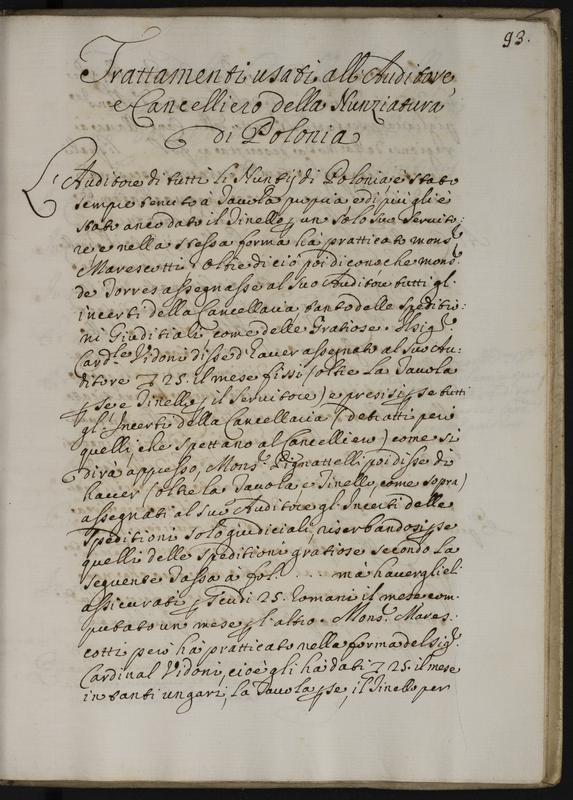 93.
Trattamenti usati all'Auditore,
e Cancelliero della Nunziatura
di Polonia
L'Auditore di tutti li Nuntij di Polonia, è stato
sempre tenuto a Tavola propria, e di più gli è
stato anco dato il Tinello p un solo suo Servito:
re e nella stessa forma hà pratticato mons.r
Marescotti. Oltre di ciò poi dicono, che mons.r
de Torres assegnasse al suo Auditore tutti gl'
incerti della Cancellaria, tanto delle speditio:
ni Giuditiali, come delle Gratiose. Il sig.r
Card.le Vidoni disse d'haver assegnato al suo Au:
ditore 25. il mese fissi (oltre la Tavola
p se e Tinello p il servitore) e presisi p se tutti
gl'Incerti della Cancellaria (detratti però
quelli che spettano al Cancelliero) come si
dirà appresso, Mons.r Pignattelli poi disse di
haver (oltre la Tavola, e Tinello, come sopra)
assegnati al suo Auditore gl'Incerti delle
speditioni solo giudiciali, riserbandosi p se
quelli delle speditioni gratiose secondo la
sequente Tassa à fol. .... mà havergliel'
assicurati p scudi 25. Romani il mese com:
putato un mese p l'altro. Mons.r Mares:
cotti però hà pratticato nella forma del sig.r
Cardinal Vidoni, cioè gli hà dati 25. il mese
in tanti ungari, la Tavola p se, il Tinello per